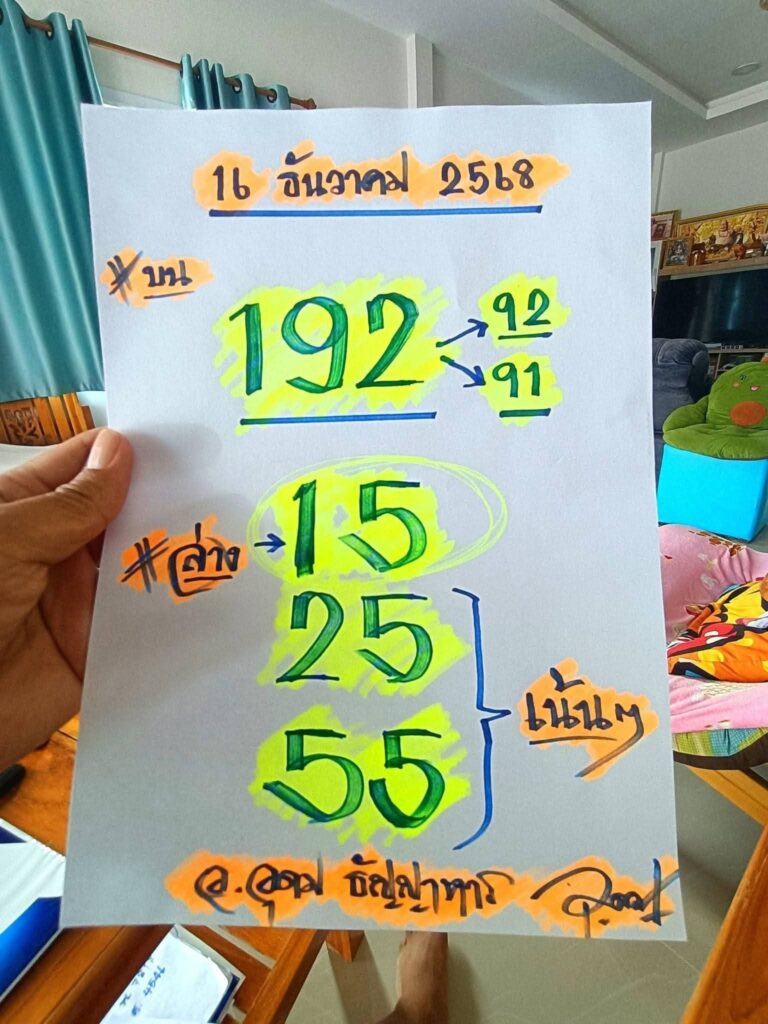 16 ธันวาคม 2568
#บน
192
92
91
#ล่าง
15
25
55
เน้นๆ
อ.อุดม ธัญญาหาร
4546